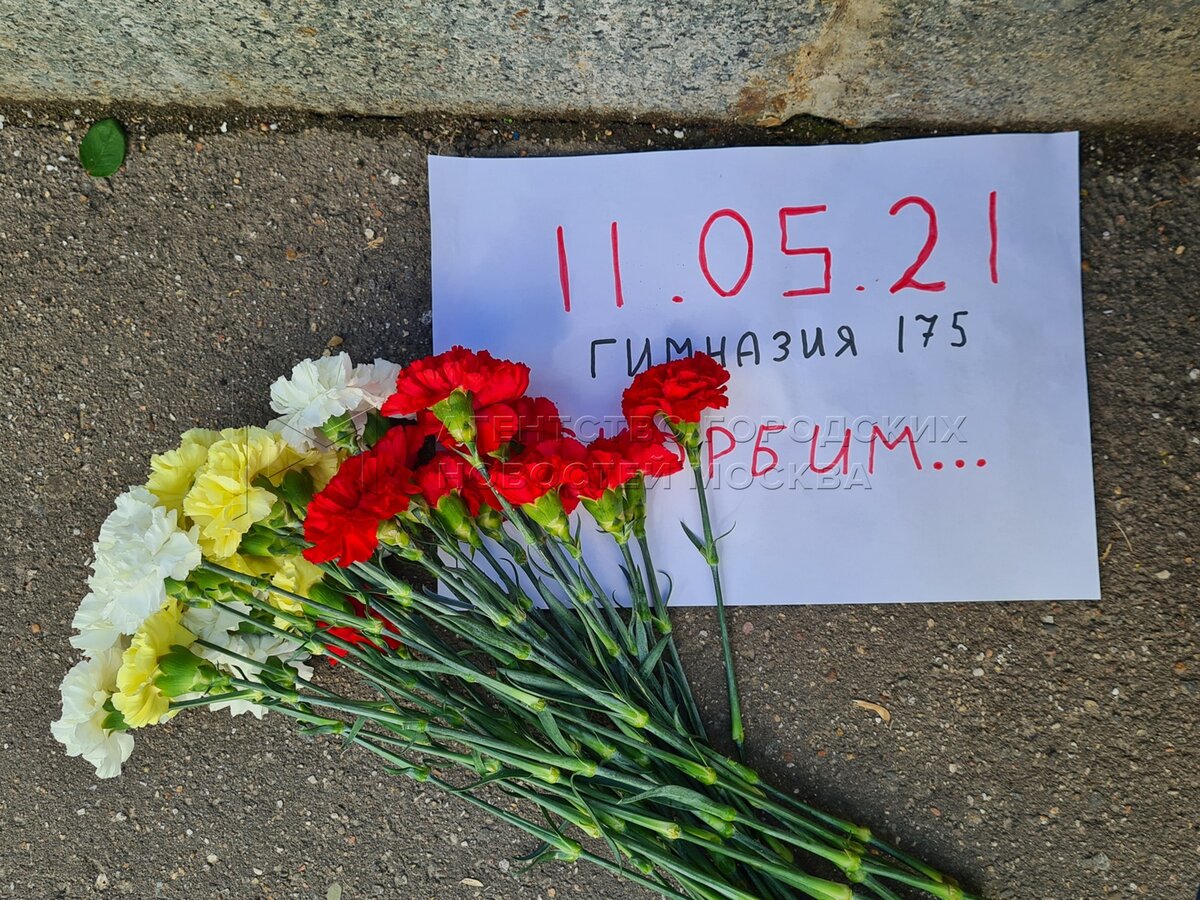 11.05.21
ГИМНАЗИЯ 175
РБИМ...
АГЕНТСТВО ГОРОДСКИХ
НОВОСТЕЙ МОСКВА